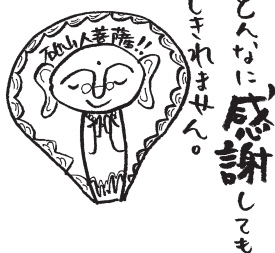 どんなに感謝しても
しきれません。
菩薩!!